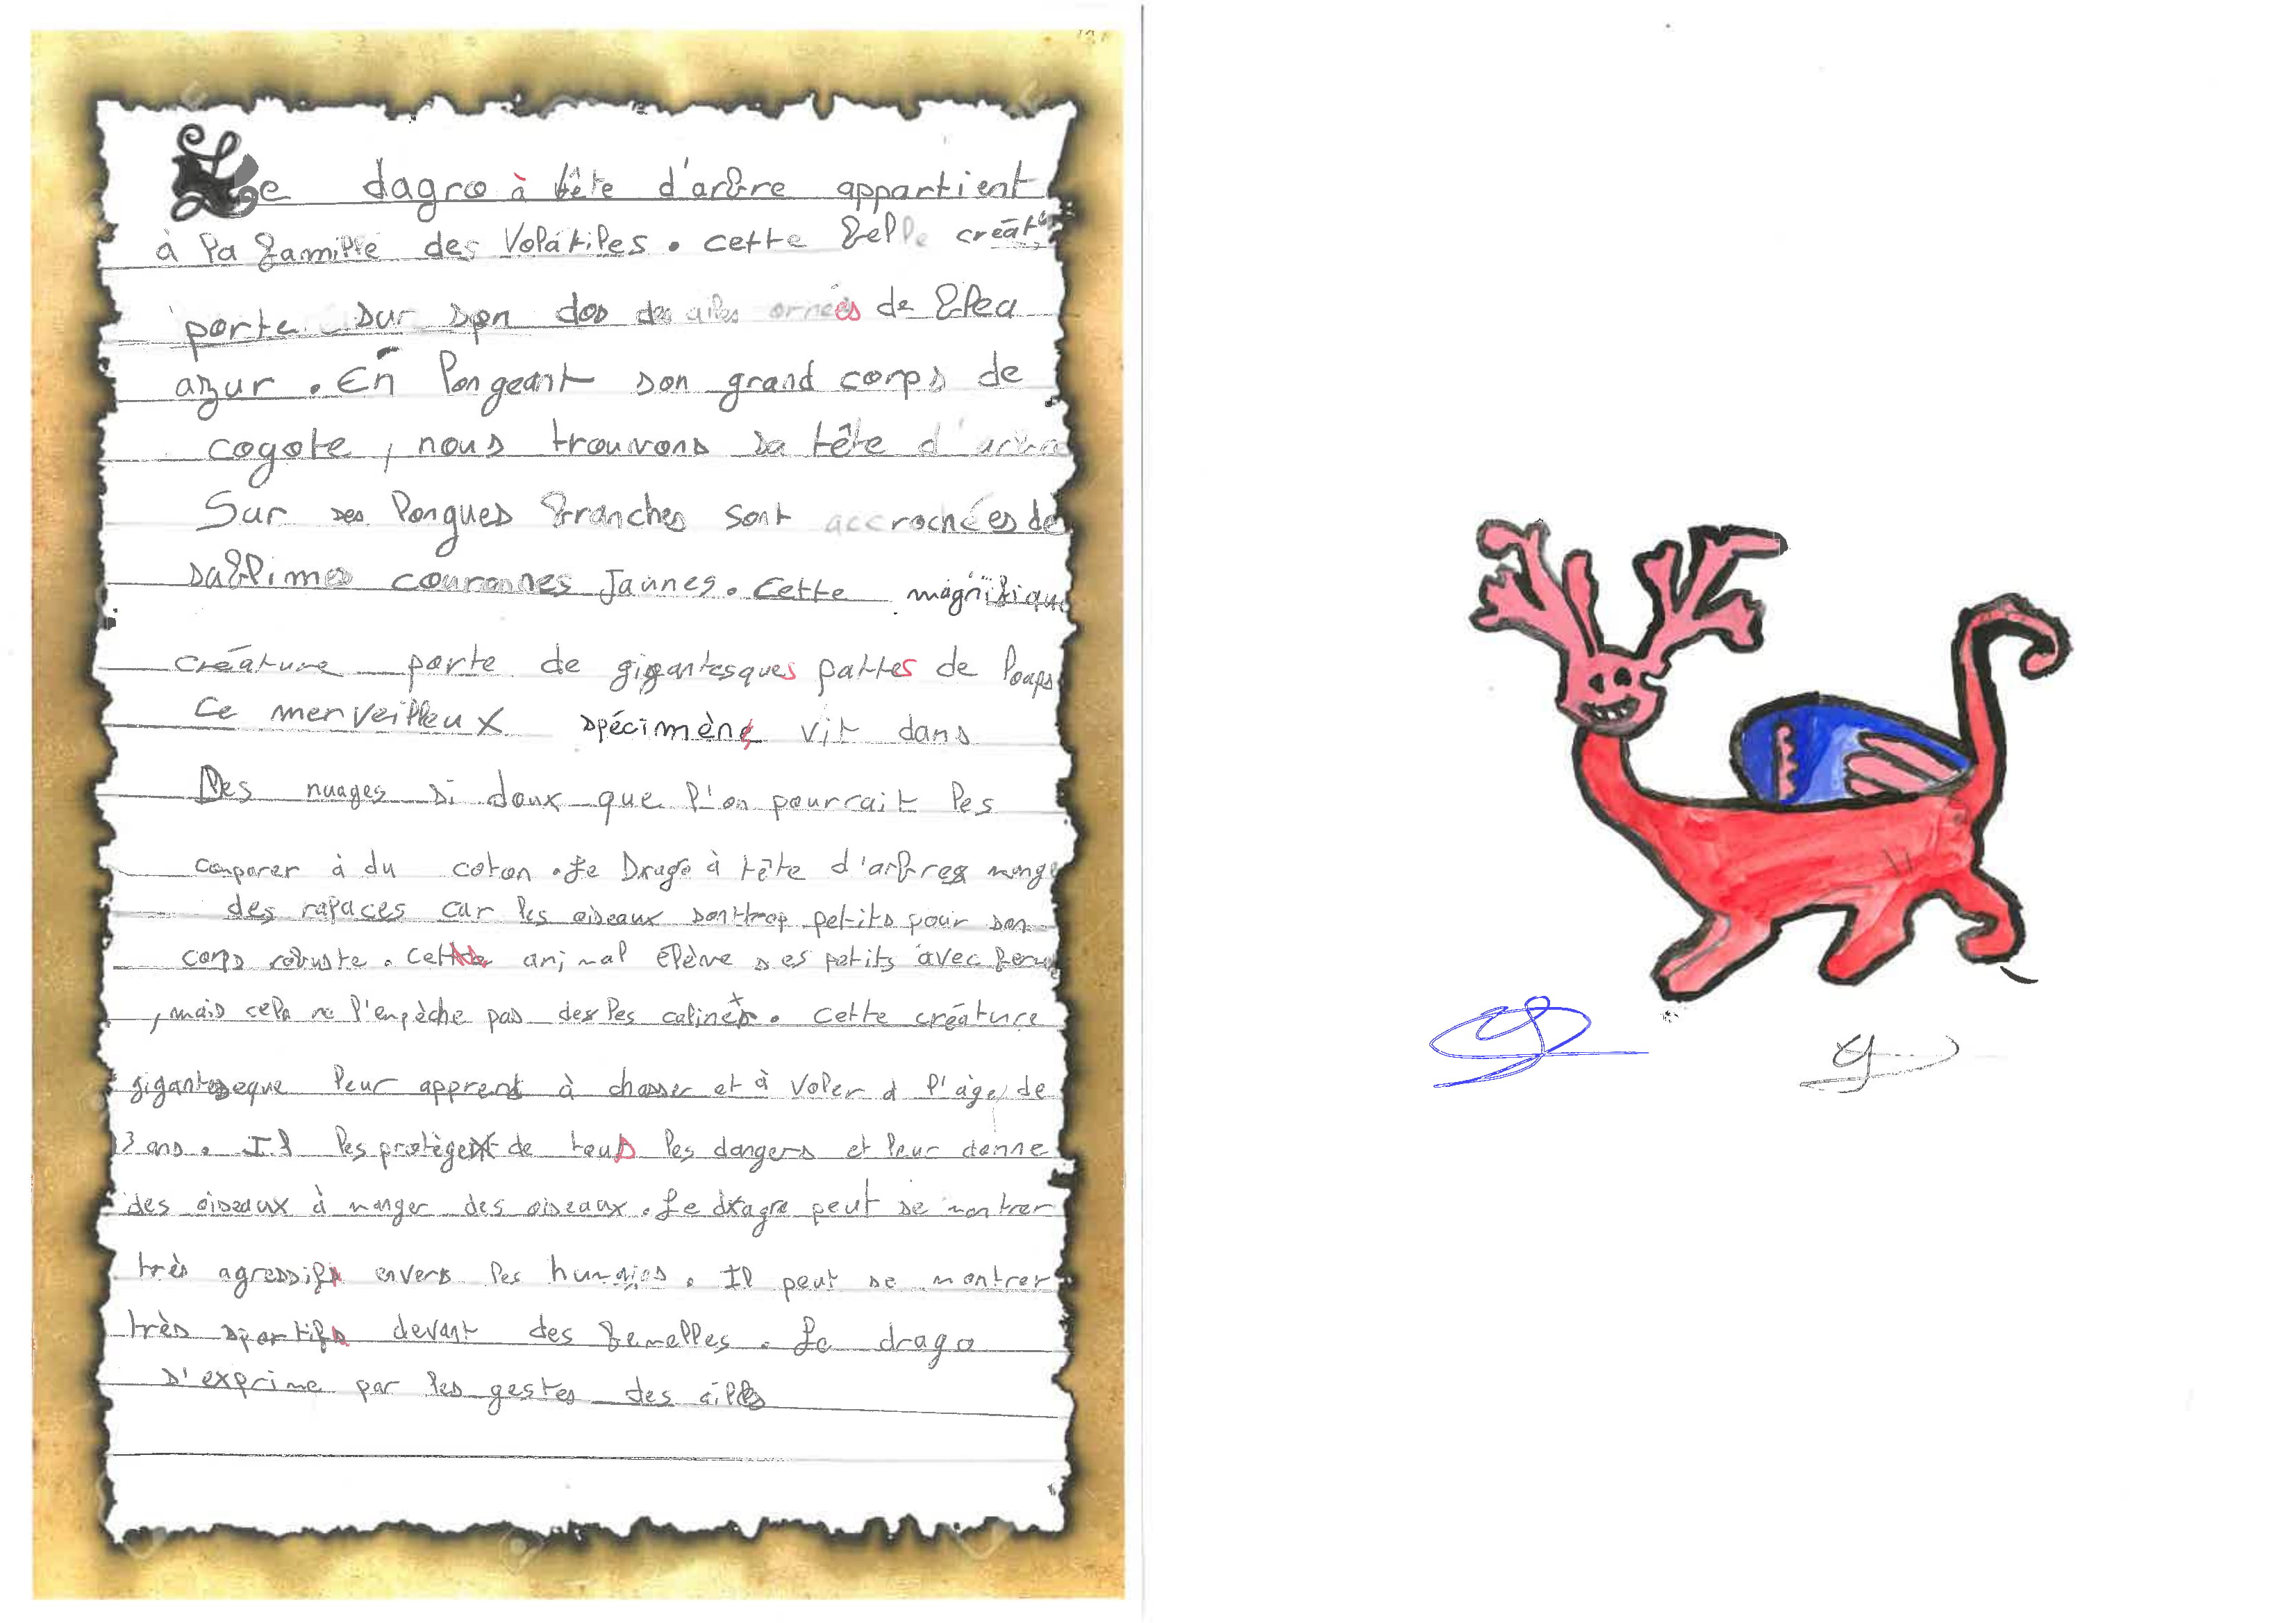 Le dagro à tête d'arbre appartient
à la famille des Volatiles. cette belle créat
porte sur son dos des ailes ornées de blea
azur. En longeant son grand corps de
cogote, nous trouvons sa tête d'arbre
Sur ses longues branches sont accrochées de
sublimes couronnes Jaunes. cette magnifique
créature porte de gigantesques pattes de loups
Ce merveilleux spécimèn vit dans
Des nuages si doux que l'on pourrait les
comparer à du coton. Le Drago à tête d'arbres mange
des rapaces car les oiseaux sont trop petits pour son
corps robuste. Cet animal élève ses petits avec
, mais cela ne l'empèche pas de les caliner. cette créature
gigantesque leur apprend à chasser et à Voler à l'âge de
3 ans. Il les protège de tous les dangers et leur donne
des oiseaux à manger des oiseaux. Le dragre peut se montrer
très agressif envers les humains. Il peut se montrer
très sportif devant des femelles. Le drago
s'exprime par les gestes des ailes